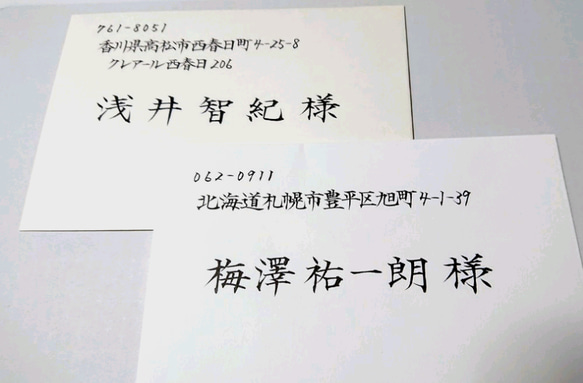 761-8051
香川県高松市西春日町4-25-8
クレアール西春日206
浅井智紀様
062-0911
北海道札幌市豊平区旭町4-1-39
梅澤祐一朗様